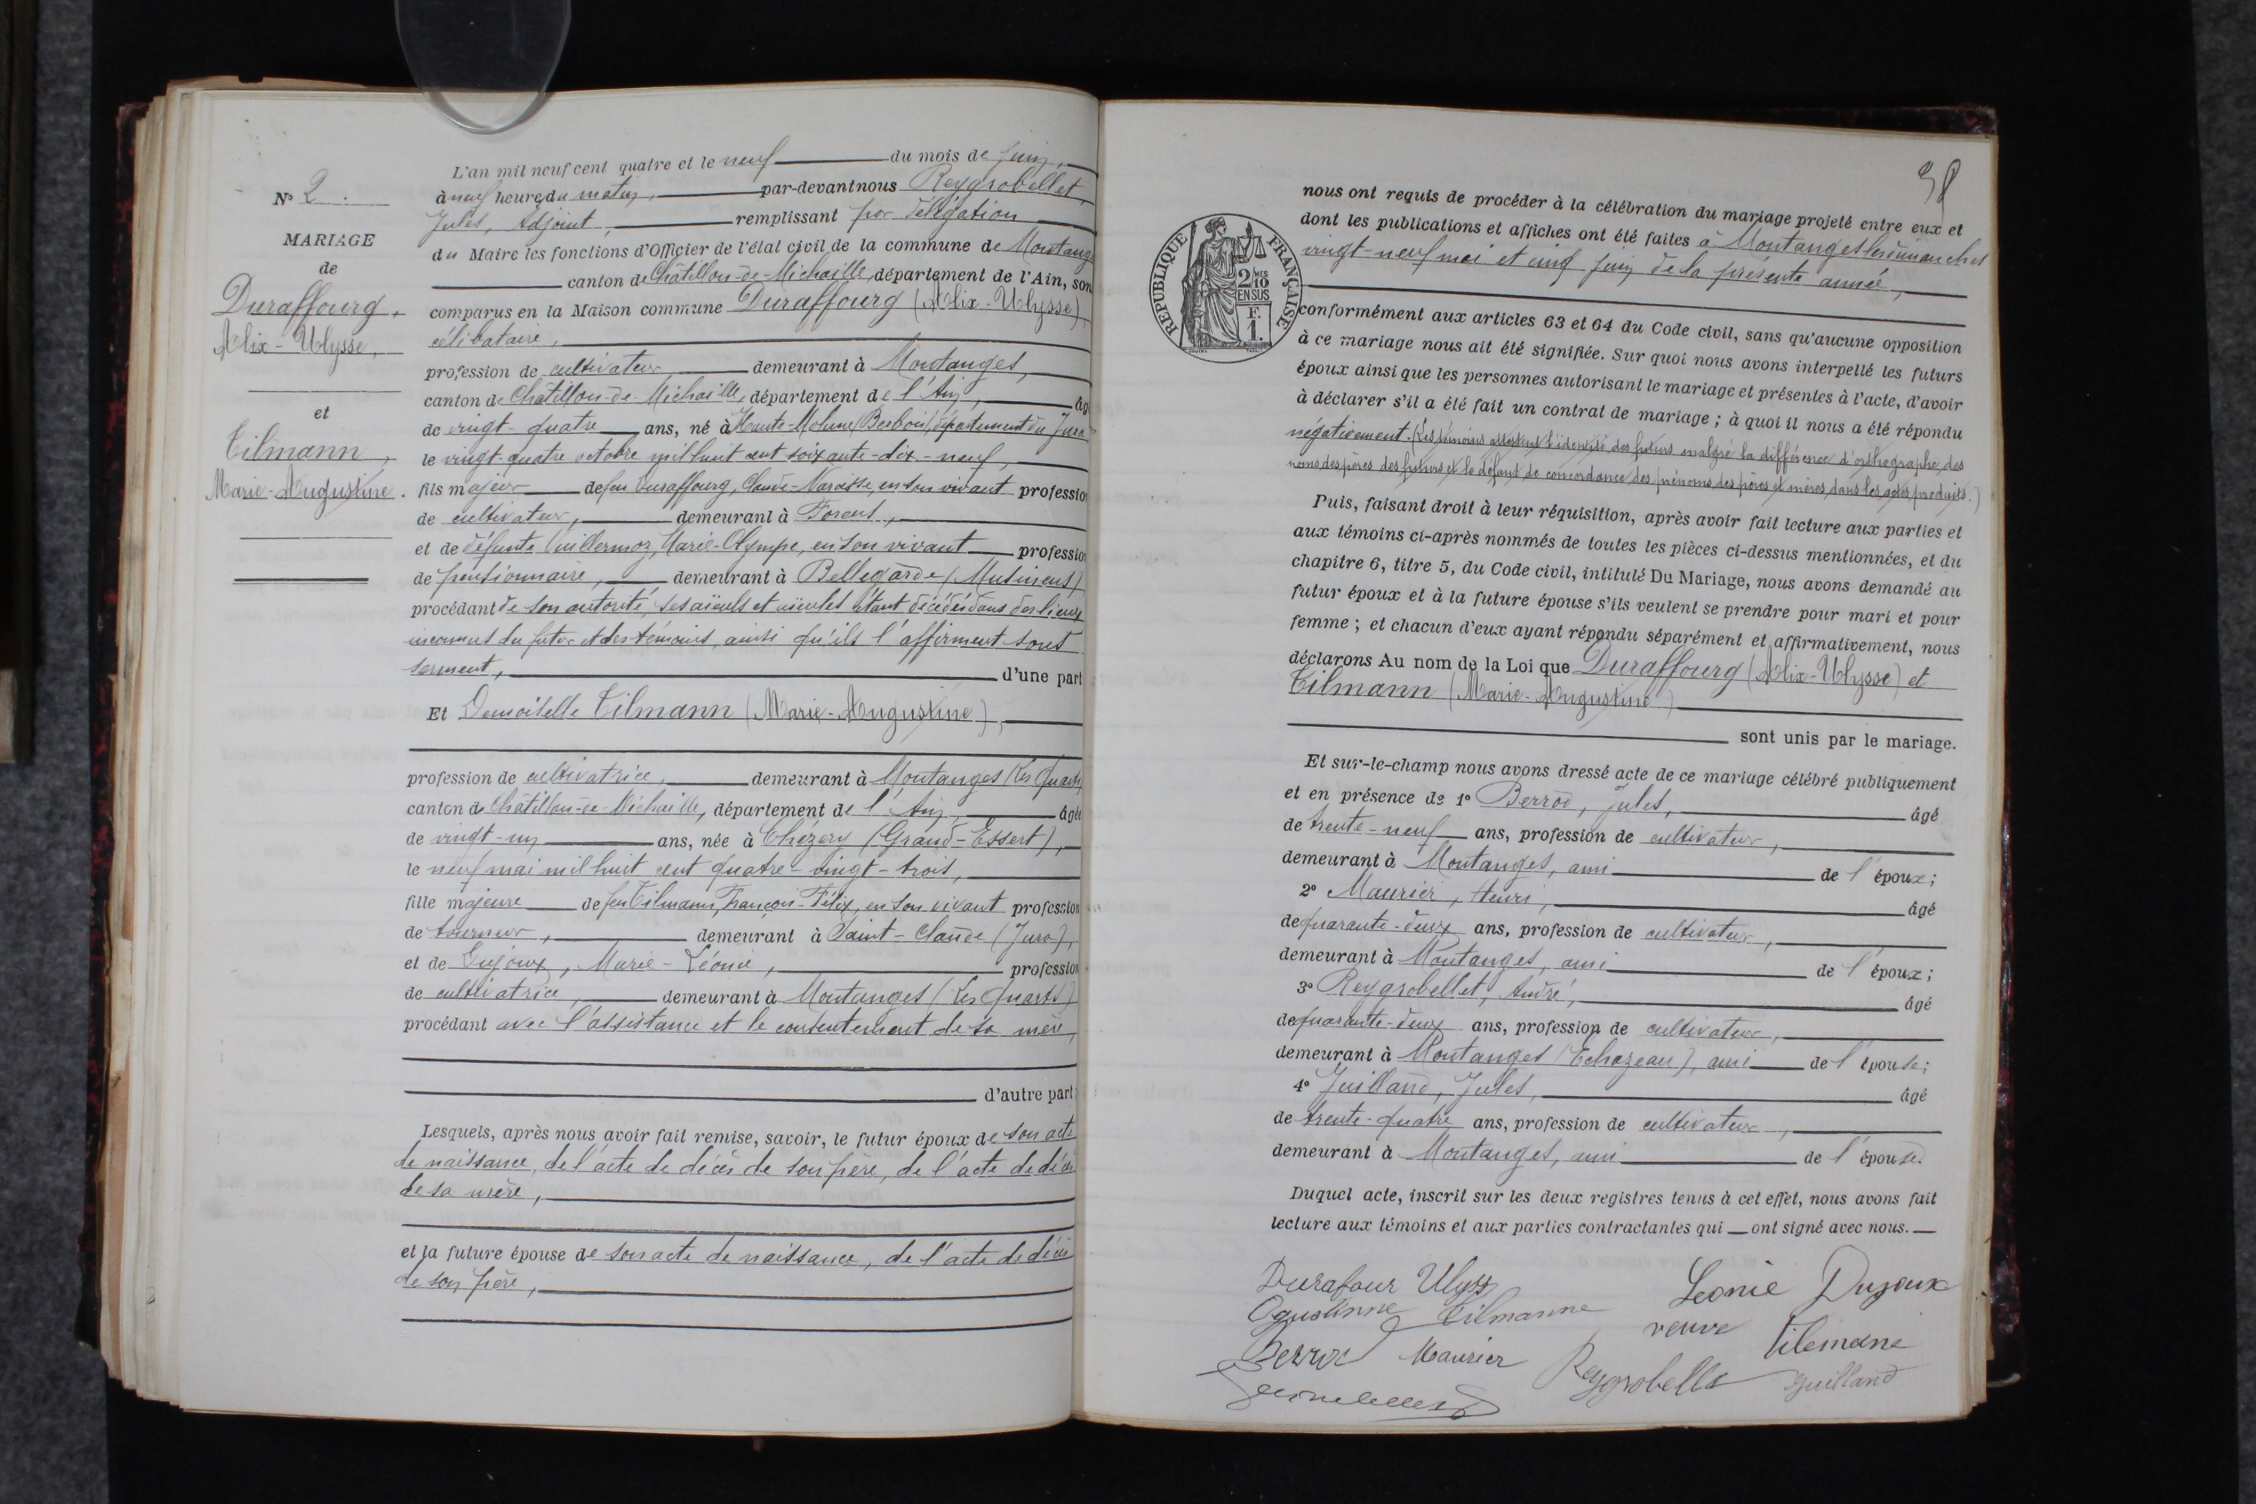 N° 2.
MARIAGE
de
Duraffourg,
Alix-Ulysse,
et
Tilmann,
Marie-Augustine.
L'an mil neuf cent quatre et le neuf du mois de juin,
à neuf heures du matin, par-devant nous Reygrobellet,
Jules, Adjoint, remplissant par délégation
du Maire les fonctions d'Officier de l'état civil de la commune de Montanges
canton de Châtillon-de-Michaille, département de l'Ain, son
comparus en la Maison commune Duraffourg (Alix-Ulysse),
célibataire,
profession de cultivateur, demeurant à Montanges,
canton de Châtillon-de-Michaille, département de l'Ain, âgé
de vingt-quatre ans, né à Haute-Molune (Berbois) département du Jura
le vingt-quatre octobre mil huit cent soixante-dix-neuf,
fils majeur de feu Duraffourg, Claude-Narcisse, en son vivant profession
de cultivateur, demeurant à Forens,
et de défunte Vuillermoz, Marie-Olympe, en son vivant profession
de pensionnaire, demeurant à Bellegarde (Musinens)
procédant de son autorité, ses aïeuls et aïeules étant décédés dans des lieux
inconnus du futur et des témoins, ainsi qu'ils l'affirment sous
serment, d'une part
Et Demoiselle Tilmann (Marie-Augustine),
profession de cultivatrice, demeurant à Montanges (Les Quarts)
canton de Châtillon-de-Michaille, département de l'Ain, âgée
de vingt-un ans, née à Chézery (Grand-Essert),
le neuf mai mil huit cent quatre-vingt-trois,
fille majeure de feu Tilmann, François-Félix, en son vivant profession
de tourneur, demeurant à Saint-Claude (Jura),
et de Dujoux, Marie-Léonie, profession
de cultivatrice, demeurant à Montanges (Les Quarts)
procédant avec l'assistance et le consentement de sa mère,
d'autre part
Lesquels, après nous avoir fait remise, savoir, le futur époux de son acte
de naissance, de l'acte de décès de son père, de l'acte de décès
de sa mère,
et la future épouse de son acte de naissance, de l'acte de décès
de son père,
38
RÉPUBLIQUE FRANÇAISE
2/10 EN SUS
F. 1.
nous ont requis de procéder à la célébration du mariage projeté entre eux et
dont les publications et affiches ont été faites à Montanges les dimanches
vingt-neuf mai et cinq juin de la présente année,
conformément aux articles 63 et 64 du Code civil, sans qu'aucune opposition
à ce mariage nous ait été signifiée. Sur quoi nous avons interpellé les futurs
époux ainsi que les personnes autorisant le mariage et présentes à l'acte, d'avoir
à déclarer s'il a été fait un contrat de mariage ; à quoi il nous a été répondu
négativement. (Les témoins attestent l'identité des futurs malgré la différence d'orthographe des
noms des pères des futurs et le défaut de concordance des prénoms des pères et mères dans les actes produits.)
Puis, faisant droit à leur réquisition, après avoir fait lecture aux parties et
aux témoins ci-après nommés de toutes les pièces ci-dessus mentionnées, et du
chapitre 6, titre 5, du Code civil, intitulé Du Mariage, nous avons demandé au
futur époux et à la future épouse s'ils veulent se prendre pour mari et pour
femme ; et chacun d'eux ayant répondu séparément et affirmativement, nous
déclarons Au nom de la Loi que Duraffourg (Alix-Ulysse) et
Tilmann (Marie-Augustine)
sont unis par le mariage.
Et sur-le-champ nous avons dressé acte de ce mariage célébré publiquement
et en présence de 1° Berrod, Jules, âgé
de trente-neuf ans, profession de cultivateur,
demeurant à Montanges, ami de l'époux;
2° Maurier, Henri, âgé
de quarante-deux ans, profession de cultivateur,
demeurant à Montanges, ami de l'époux;
3° Reygrobellet, André, âgé
de quarante-deux ans, profession de cultivateur,
demeurant à Montanges (Echazeau), ami de l'épouse;
4° Juilland, Jules, âgé
de trente-quatre ans, profession de cultivateur,
demeurant à Montanges, ami de l'épouse.
Duquel acte, inscrit sur les deux registres tenus à cet effet, nous avons fait
lecture aux témoins et aux parties contractantes qui ont signé avec nous.
Durafour Ulyss
Leonie Dujoux
Ogustinne Tilmanne
veuve Tilemane
Berrod Maurier Reygrobelle Juilland